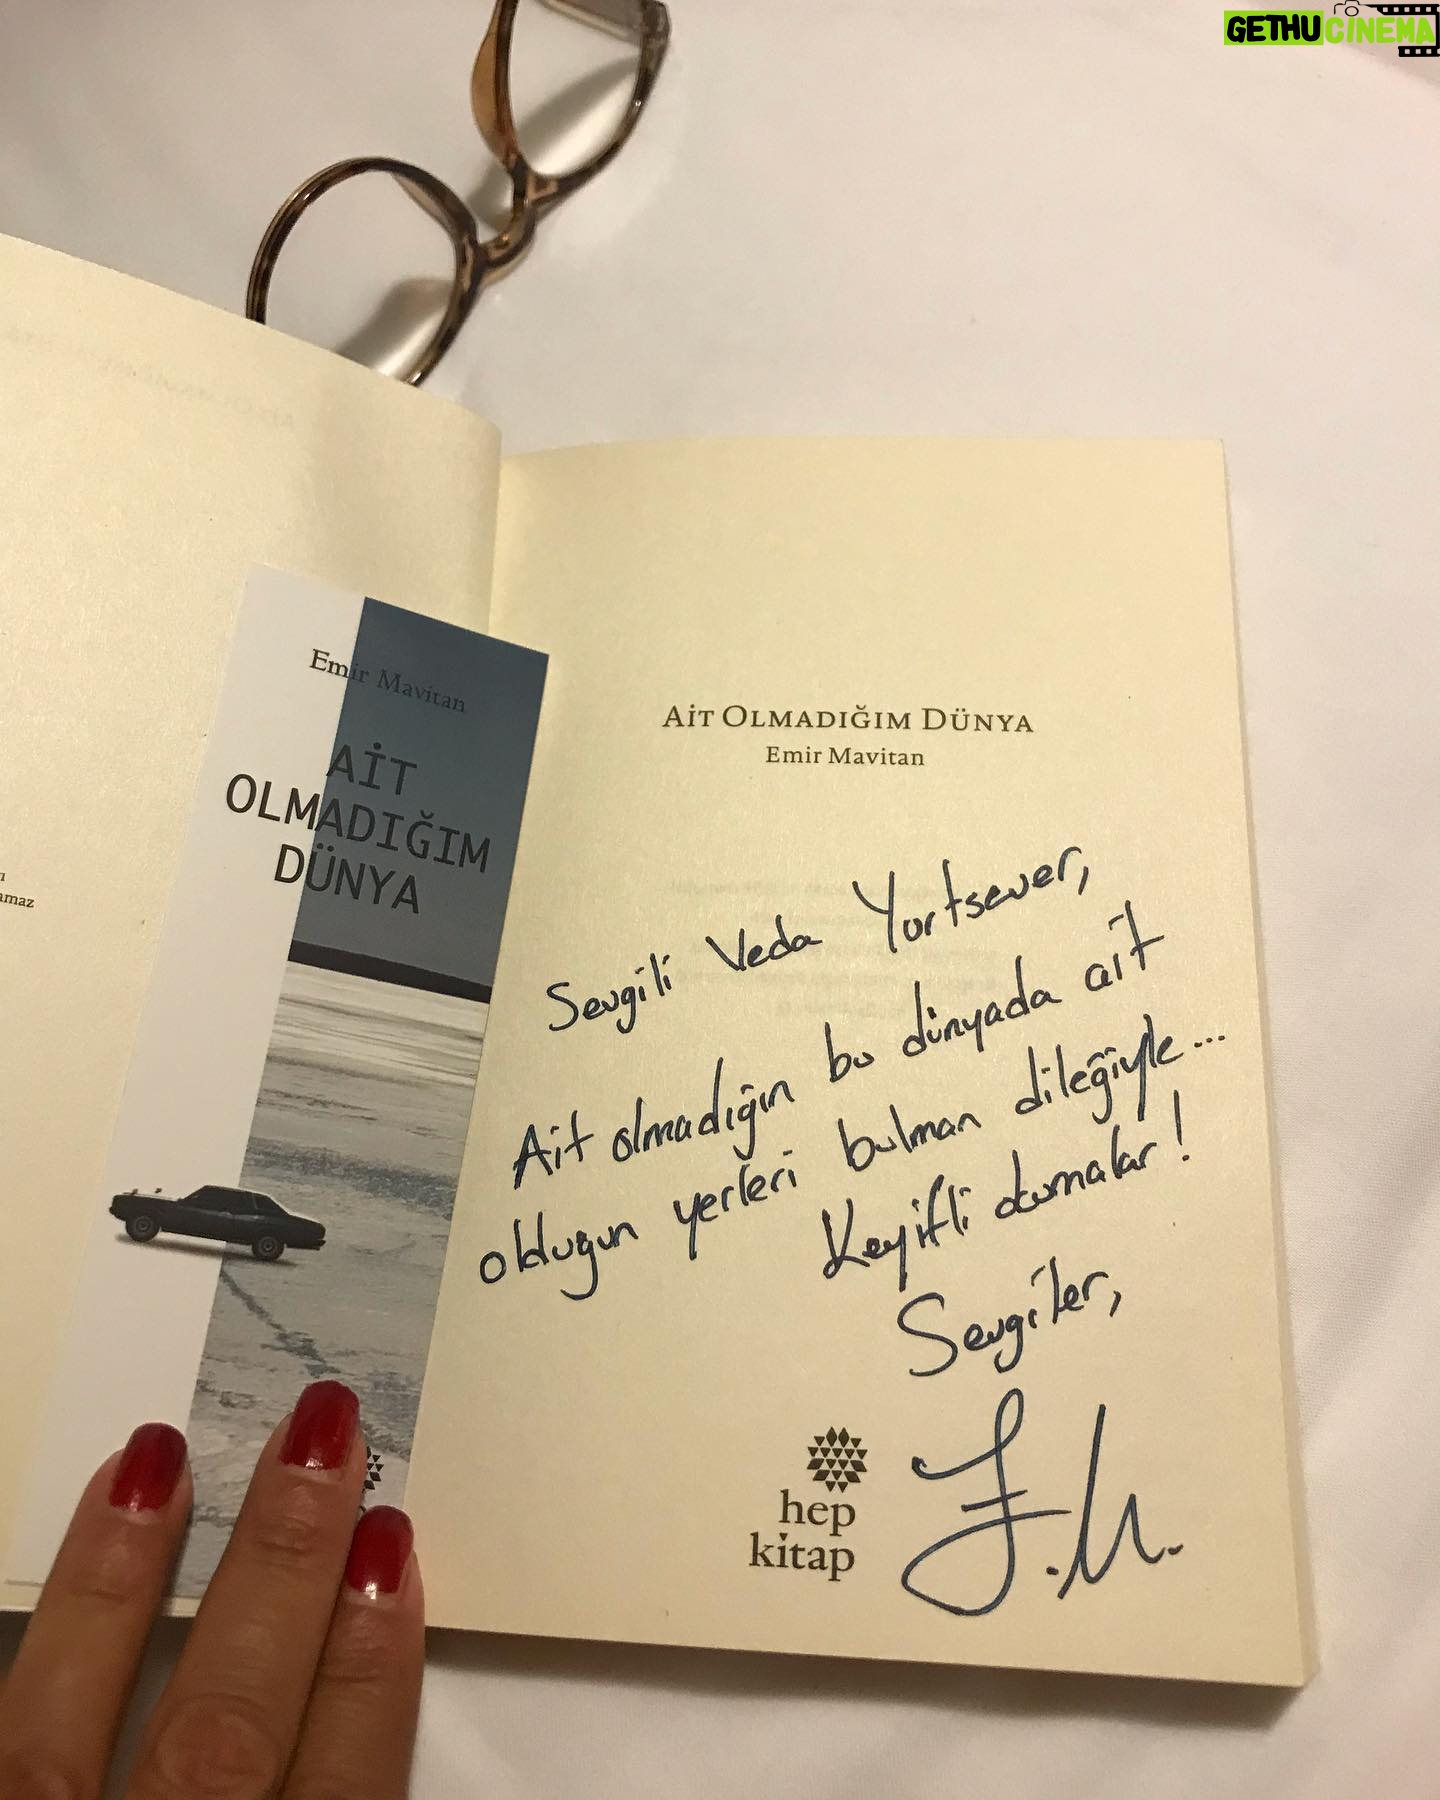 GETHUCINEMA
Emir Mavitan
AİT
OLMADIĞIM
DÜNYA
amaz
AİT OLMADIĞIM DÜNYA
Emir Mavitan
Sevgili Veda Yurtsever,
Ait olmadığın bu dünyada ait
olduğun yerleri bulman dileğiyle...
Keyifli okumalar!
Sevgiler,
E.M.
hep
kitap